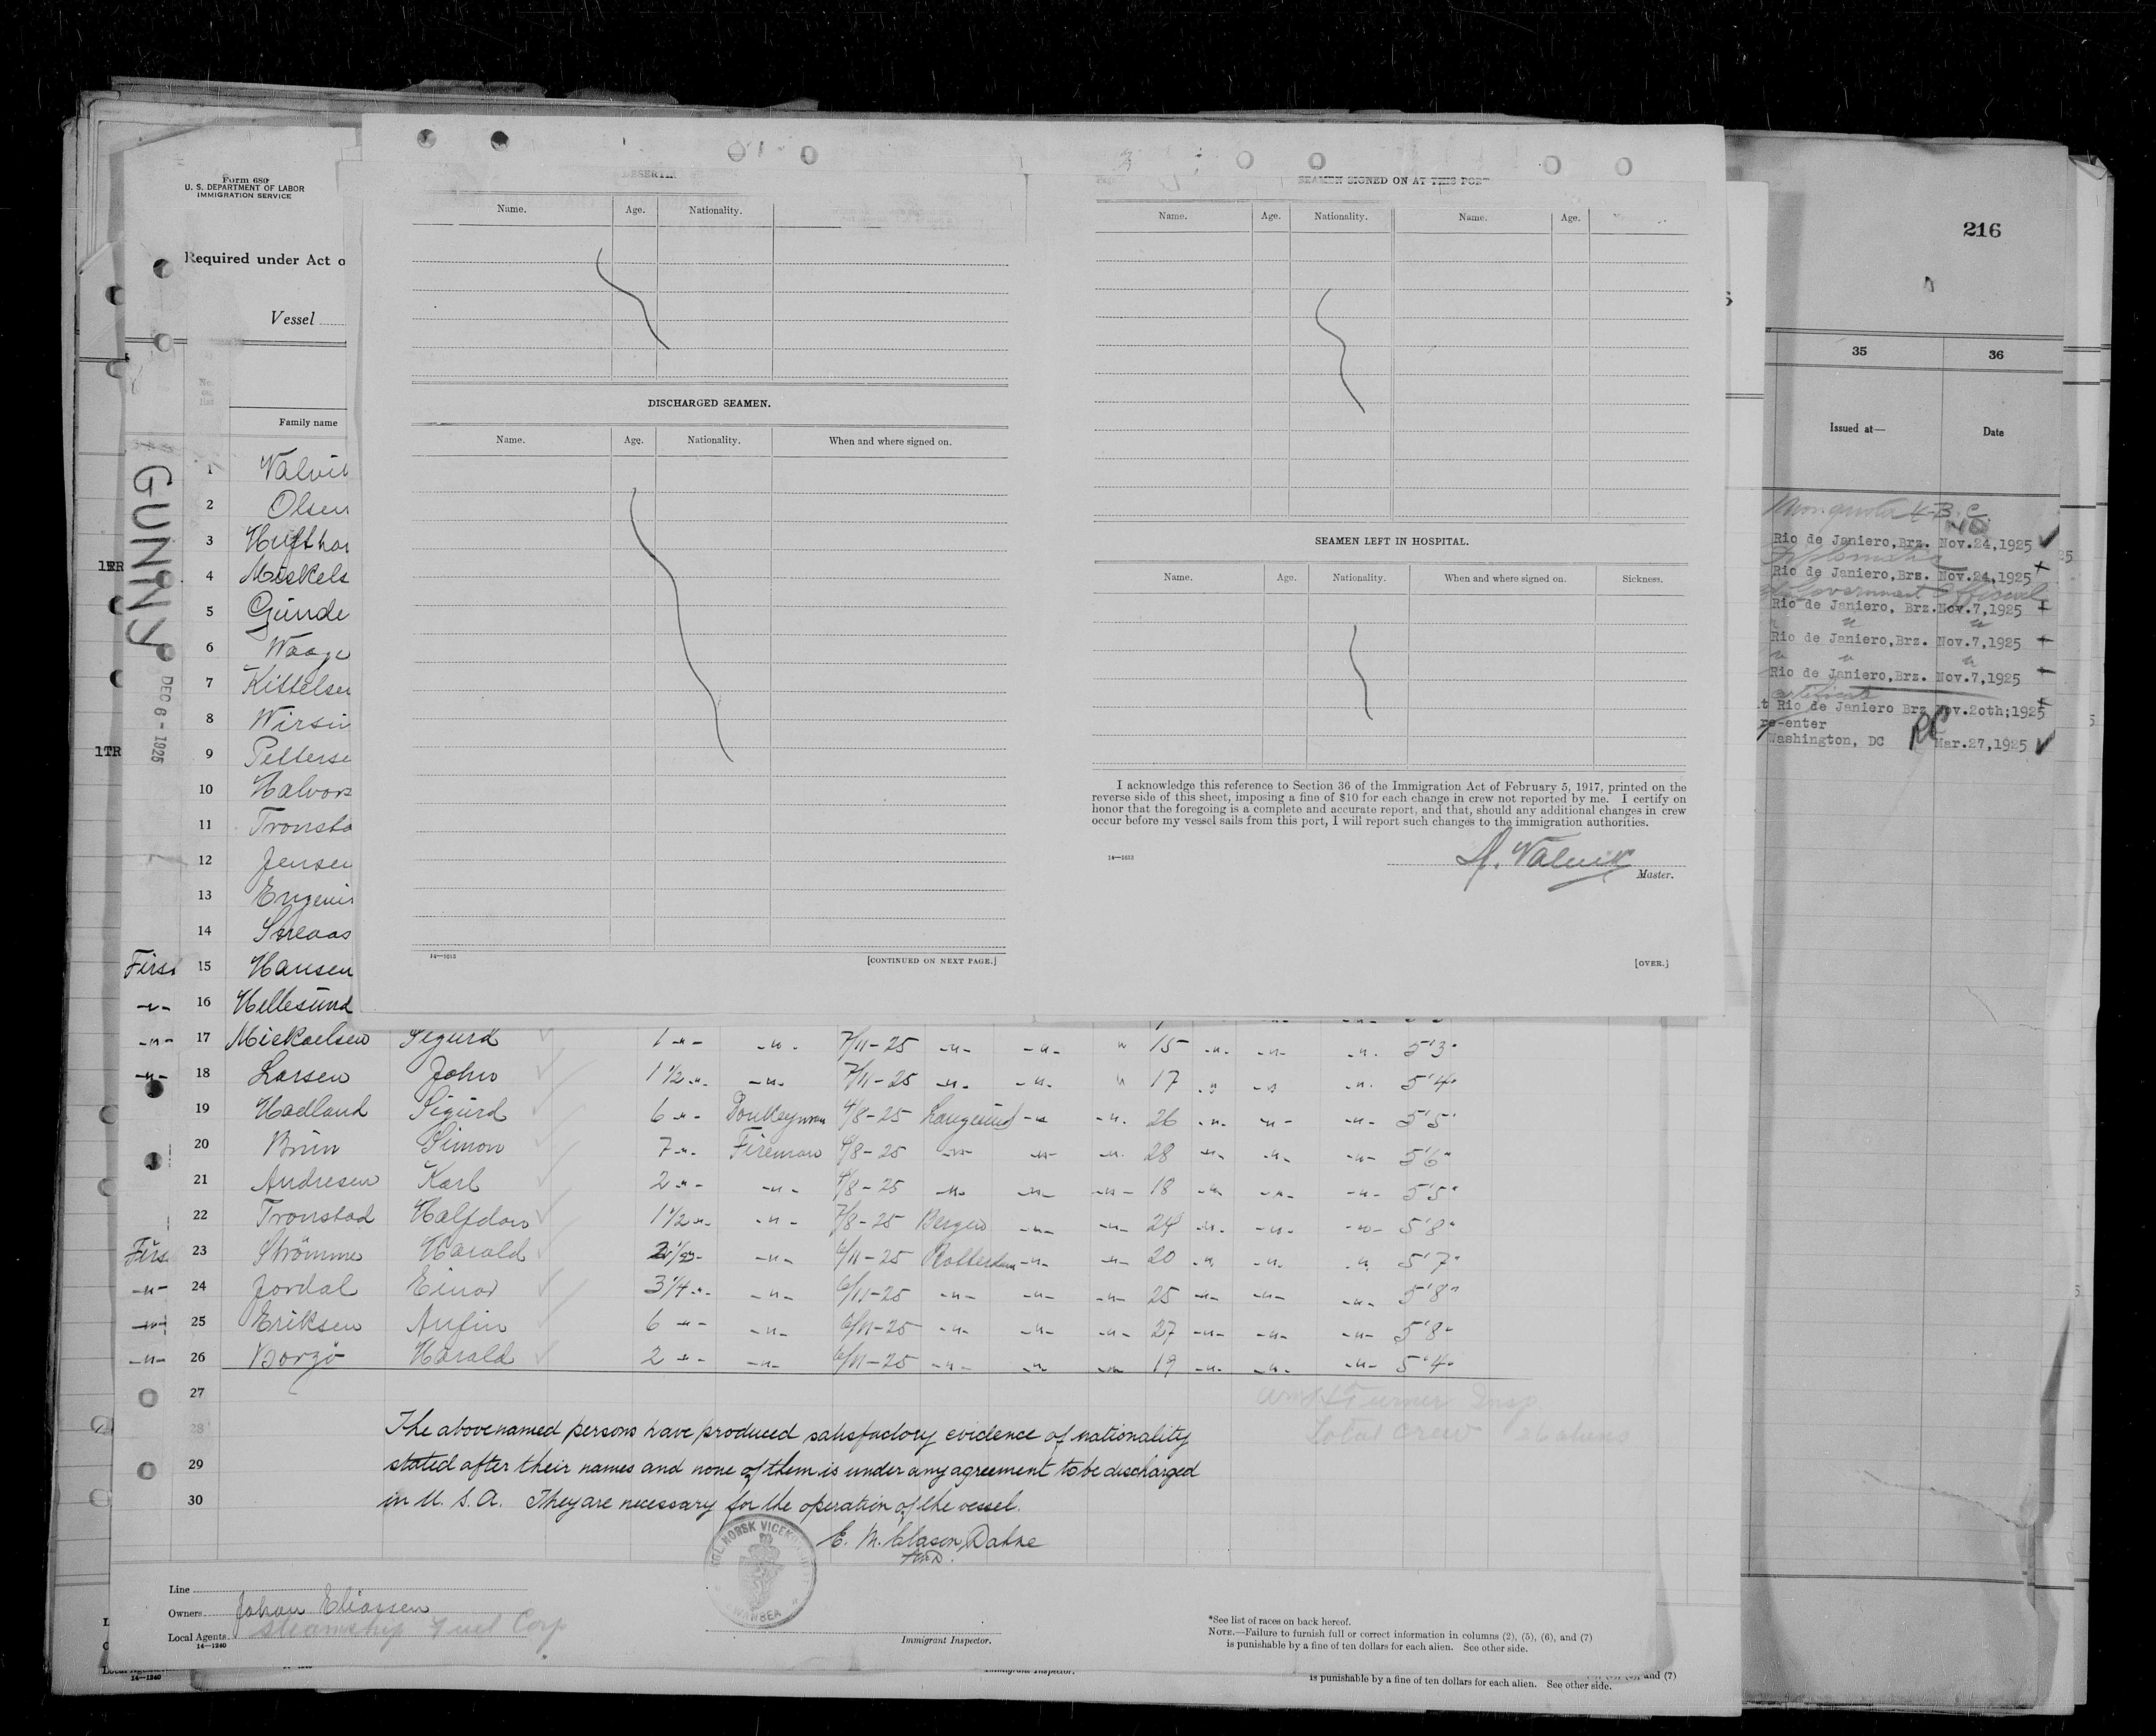 Form 680
U. S. DEPARTMENT OF LABOR
IMMIGRATION SERVICE
Required under Act o
Vessel
No. on list
Family name
GUNNY
DEC 6 - 1925
1 Valvik
2 Olsen
3 Hufthar
4 Miskels
5 Gunde
6 Waage
7 Kittelsen
8 Wirsin
9 Petterse
10 Halvors
11 Tronsta
12 Jensen
13 Eugenis
14
First 15 Hansen
-"- 16 Hellesund
DESERTIN
Name. Age. Nationality.
DISCHARGED SEAMEN.
Name. Age. Nationality. When and where signed on.
14—1613
[CONTINUED ON NEXT PAGE.]
SEAMEN SIGNED ON AT THIS PORT
Name. Age. Nationality. Name. Age.
SEAMEN LEFT IN HOSPITAL.
Name. Age. Nationality. When and where signed on. Sickness.
I acknowledge this reference to Section 36 of the Immigration Act of February 5, 1917, printed on the
reverse side of this sheet, imposing a fine of $10 for each change in crew not reported by me. I certify on
honor that the foregoing is a complete and accurate report, and that, should any additional changes in crew
occur before my vessel sails from this port, I will report such changes to the immigration authorities.
14—1613
Valvik
Master.
[OVER.]
-"- 17 Mickaelsen Sigurd 1 -"- -"- 7/11-25 -"- -"- " 15 -"- -"- -"- 5'3"
-"- 18 Larsen John 1 1/2 -"- -"- 7/11-25 -"- -"- " 17 -"- -"- -"- 5'4"
19 Hadland Sigurd 6 -"- Donkeyman 4/8-25 Langesund -"- -"- 26 -"- -"- -"- 5'5"
20 Brun Simon 7 -"- Fireman 4/8-25 -"- -"- -"- 28 -"- -"- -"- 5'6"
21 Andresen Karl 2 -"- -"- 4/8-25 -"- -"- -"- 18 -"- -"- -"- 5'5"
22 Tronstad Halfdan 1 1/2 -"- -"- 7/8-25 Bergen -"- -"- 24 -"- -"- -"- 5'8"
Firs 23 Strömme Harald -"- 6/11-25 Rotterdam -"- -"- 20 -"- -"- -"- 5'7"
-"- 24 Jordal Einar 3 1/4 -"- -"- 6/11-25 -"- -"- -"- 25 -"- -"- -"- 5'8"
-"- 25 Eriksen Anfin 6 -"- -"- 6/11-25 -"- -"- -"- 27 -"- -"- -"- 5'8"
-"- 26 Borgö Harald 2 -"- -"- 6/11-25 -"- -"- -"- 19 -"- -"- -"- 5'4"
27
Turner Insp
28
Total crew 26 aliens
The abovenamed persons have produced satisfactory evidence of nationality
29 stated after their names and none of them is under any agreement to be discharged
30 in U. S. A. They are necessary for the operation of the vessel.
E. M. Clason Dahne
KGL NORSK VICEKONSULAT
SWANSEA
Line
Owners Johan Eliassen
Local Agents Steamship Fuel Corp
14—1240
Immigrant Inspector.
*See list of races on back hereof.
NOTE.—Failure to furnish full or correct information in columns (2), (5), (6), and (7)
is punishable by a fine of ten dollars for each alien. See other side.
14—1240
Immigrant Inspector.
and (7)
is punishable by a fine of ten dollars for each alien. See other side.
1TR
216
35 36
Issued at— Date
Non quota 4-B
Rio de Janiero,Brz. Nov.24,1925
Diplomatic
Rio de Janiero,Brz. Nov.24,1925
Government Official
Rio de Janiero, Brz. Nov.7,1925
Rio de Janiero,Brz. Nov.7,1925
Rio de Janiero,Brz. Nov.7,1925
Certificate
Rio de Janiero Brz Nov.20th;1925
re-enter
Washington, DC Mar.27,1925